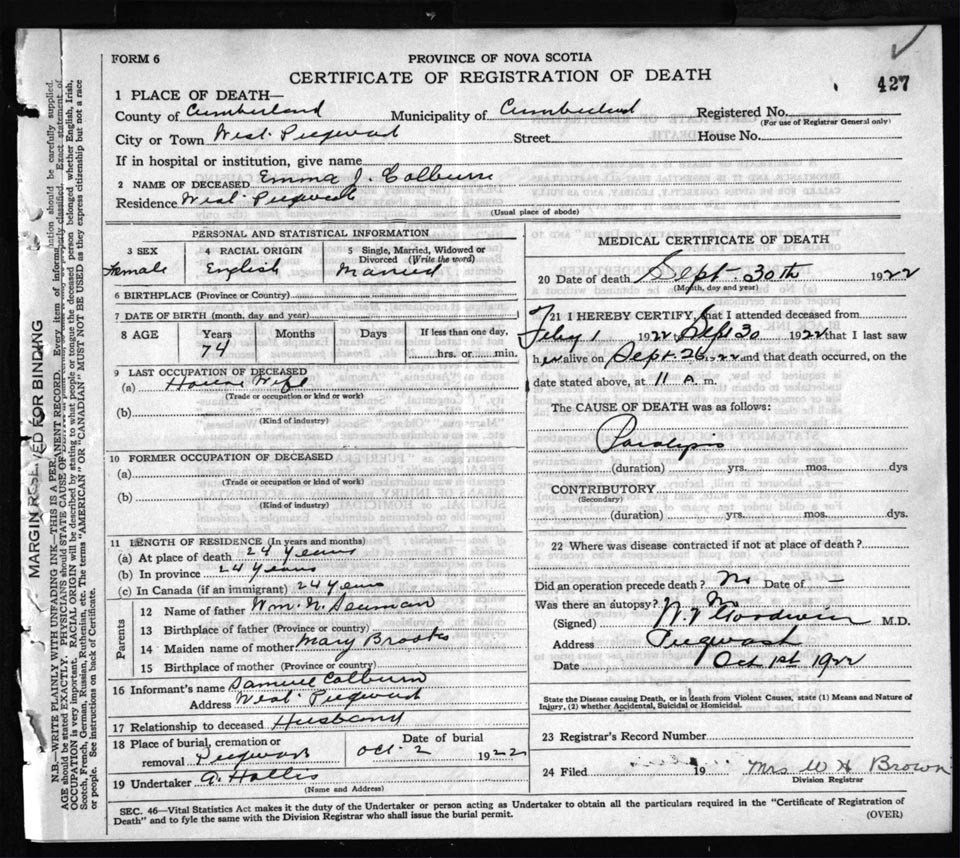 FORM 6
PROVINCE OF NOVA SCOTIA
CERTIFICATE OF REGISTRATION OF DEATH
427
1 PLACE OF DEATH—
County of Cumberland Municipality of Cumberland Registered No.
(For use of Registrar General only)
City or Town West Pugwash Street House No.
If in hospital or institution, give name
2 NAME OF DECEASED Emma J. Colburn
Residence West Pugwash
(Usual place of abode)
PERSONAL AND STATISTICAL INFORMATION
3 SEX 4 RACIAL ORIGIN 5 Single, Married, Widowed or Divorced (Write the word)
Female English Married
6 BIRTHPLACE (Province or Country)
7 DATE OF BIRTH (month, day and year)
8 AGE Years Months Days If less than one day,
74 hrs. or min.
9 LAST OCCUPATION OF DECEASED
(a) House Wife
(Trade or occupation or kind or work)
(b)
(Kind of industry)
10 FORMER OCCUPATION OF DECEASED
(a)
(Trade or occupation or kind or work)
(b)
(Kind of industry)
11 LENGTH OF RESIDENCE (In years and months)
(a) At place of death 24 Years
(b) In province 24 Years
(c) In Canada (if an immigrant) 24 Years
Parents
12 Name of father Wm. N. Seaman
13 Birthplace of father (Province or country)
14 Maiden name of mother Mary Brooks
15 Birthplace of mother (Province or country)
16 Informant's name Samuel Colburn
Address West Pugwash
17 Relationship to deceased Husband
18 Place of burial, cremation or Date of burial
removal Pugwash Oct. 2 1922
19 Undertaker A. Hollis
(Name and Address)
MEDICAL CERTIFICATE OF DEATH
20 Date of death Sept 30th 1922
(Month, day and year)
21 I HEREBY CERTIFY, that I attended deceased from
Feby 1 1922 Sept 30 1922 that I last saw
her alive on Sept. 26, 1922 and that death occurred, on the
date stated above, at 11 A m.
The CAUSE OF DEATH was as follows:
Paralysis
(duration) yrs. mos. dys
CONTRIBUTORY
(Secondary)
(duration) yrs. mos. dys.
22 Where was disease contracted if not at place of death?
Did an operation precede death? No Date of —
Was there an autopsy? No
(Signed) Goodwin M.D.
Address Pugwash
Date Oct 1st 1922
State the Disease causing Death, or in death from Violent Causes, state (1) Means and Nature of
Injury, (2) whether Accidental, Suicidal or Homicidal.
23 Registrar's Record Number
24 Filed 19 Mrs W H Brown
Division Registrar
SEC. 46—Vital Statistics Act makes it the duty of the Undertaker or person acting as Undertaker to obtain all the particulars required in the "Certificate of Registration of
Death" and to fyle the same with the Division Registrar who shall issue the burial permit. (OVER)
MARGIN RESERVED FOR BINDING
N.B.—WRITE PLAINLY WITH UNFADING INK—THIS IS A PERMANENT RECORD. Every item of information should be carefully supplied.
AGE should be stated EXACTLY. PHYSICIANS should STATE CAUSE OF properly classified. Exact statement of
OCCUPATION is very important. RACIAL ORIGIN will be described by stating to what people or tongue the deceased person belonged whether English, Irish,
Scotch, French, German, Russian, Ruthenian, etc. The terms "AMERICAN" OR "CANADIAN" MUST NOT BE USED as they express citizenship but not a race
or people. See instructions on back of Certificate.